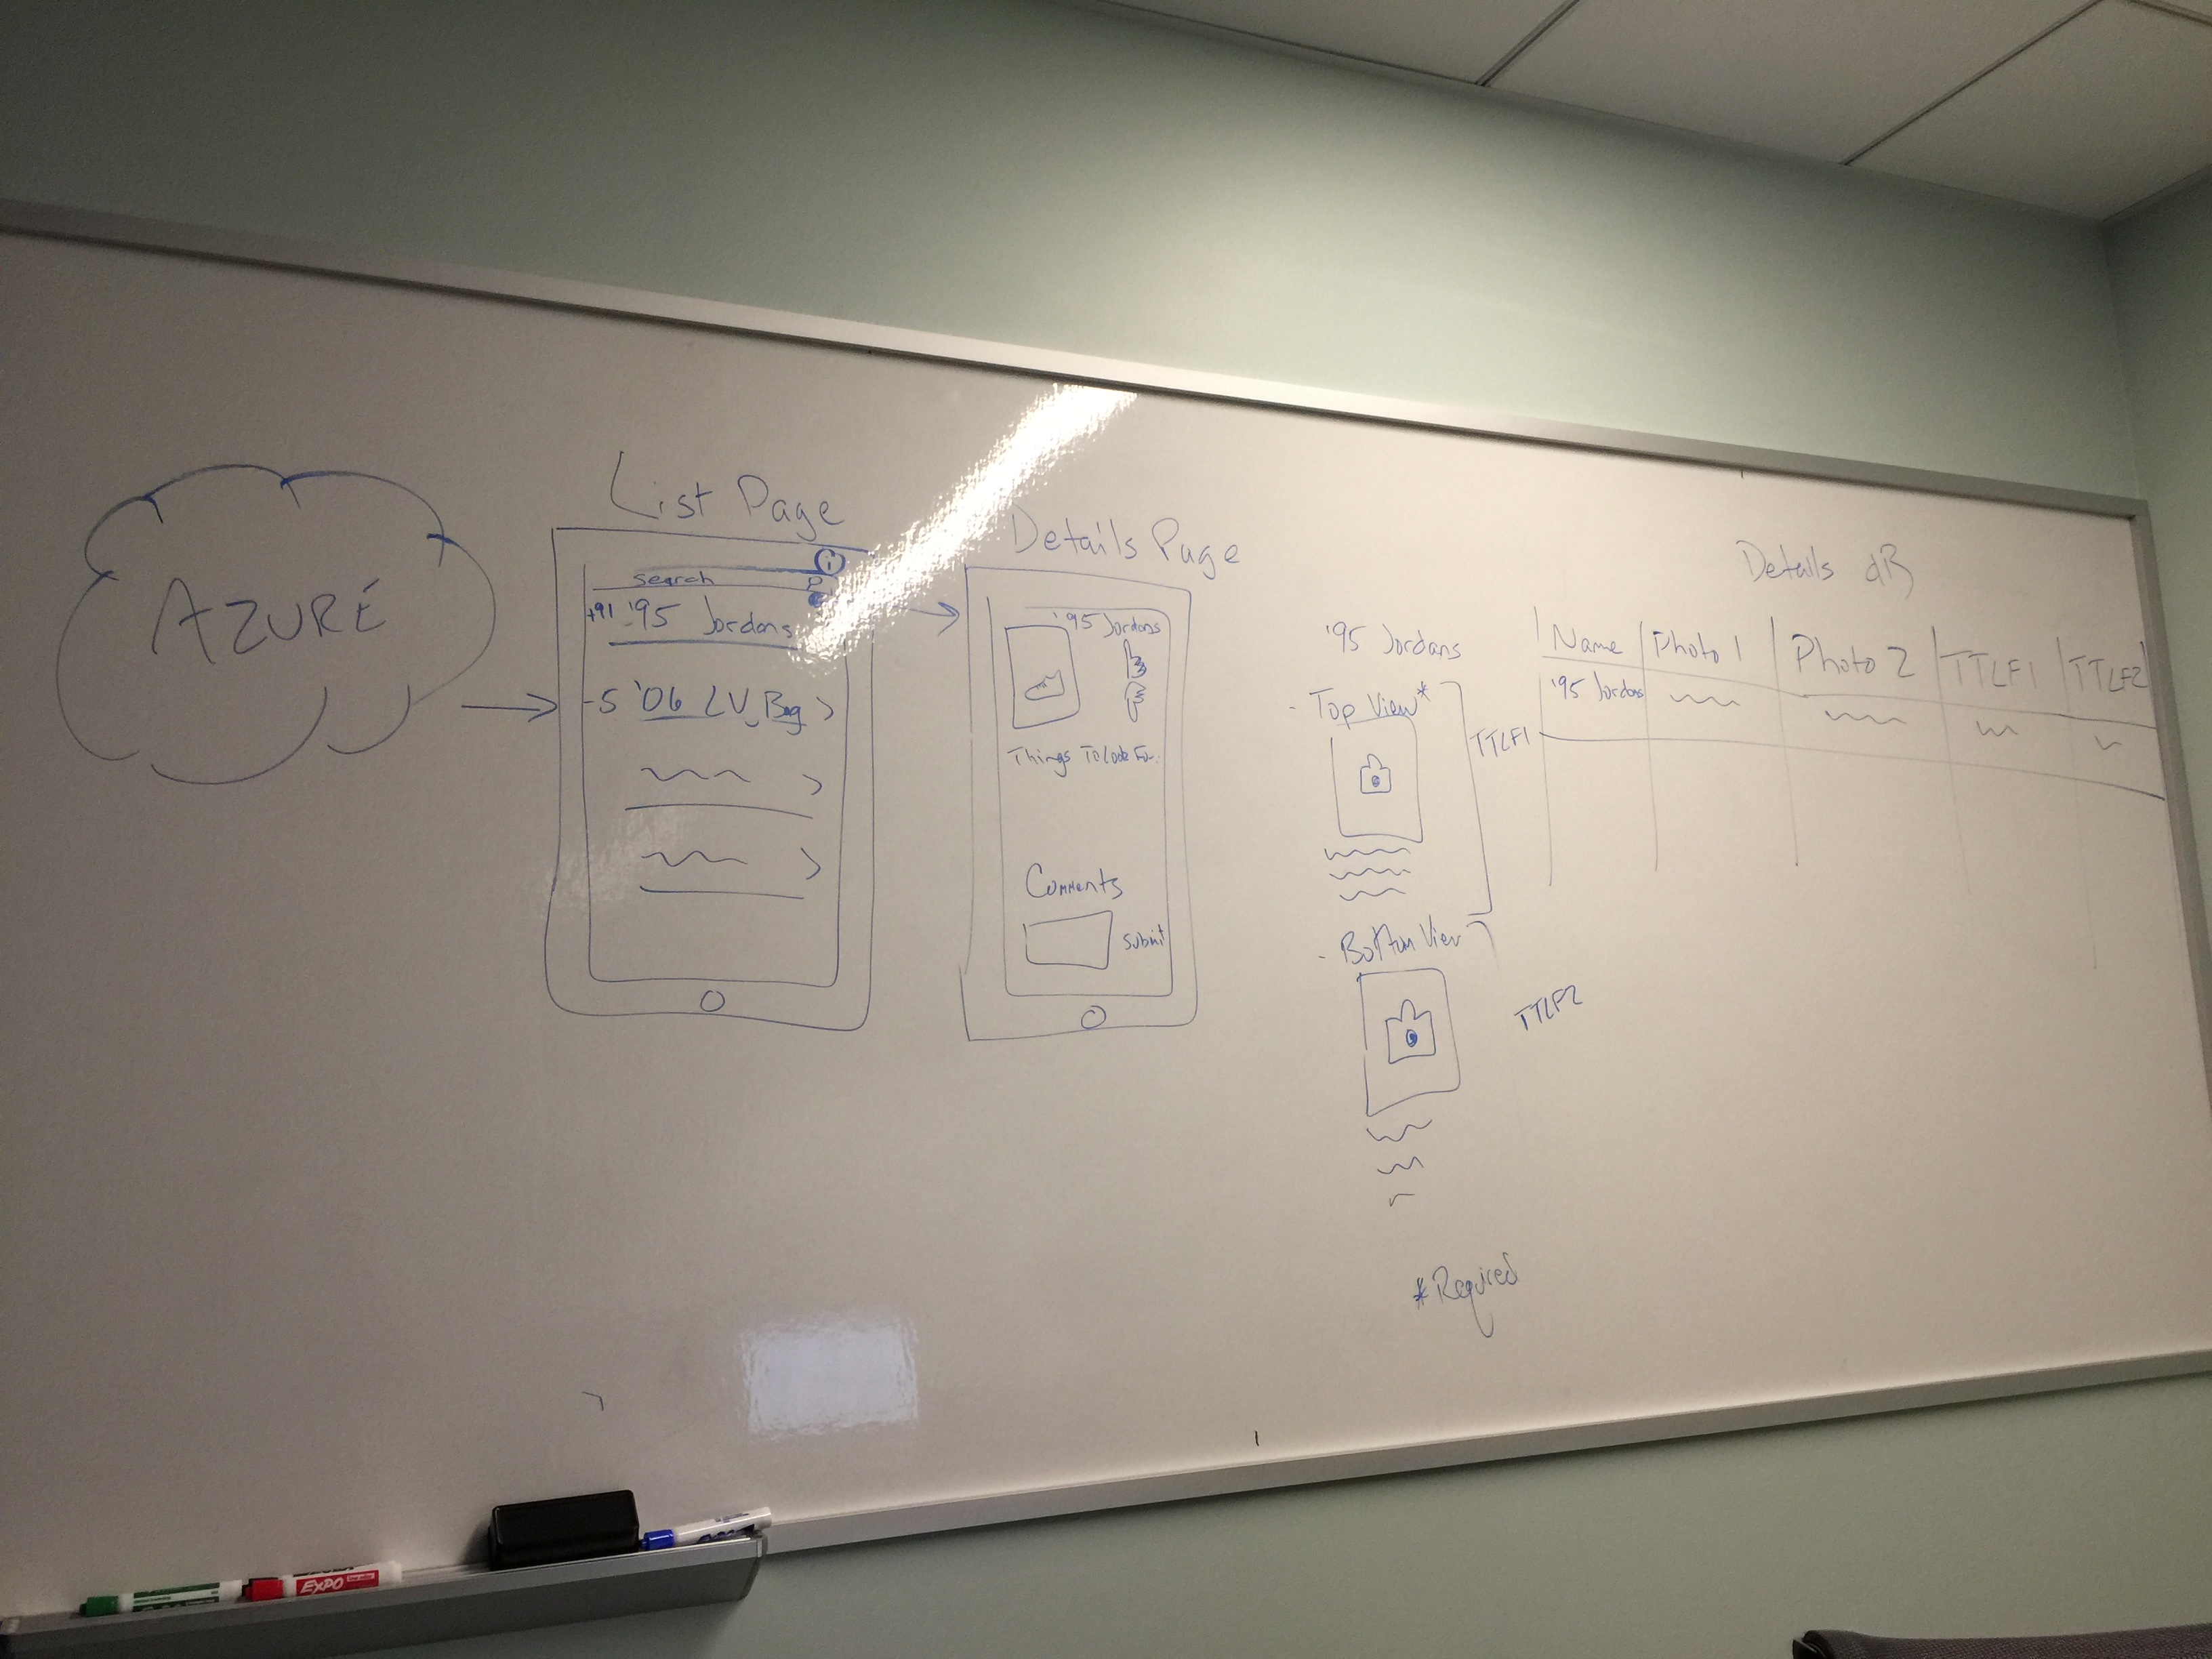 AZURE
List Page
search
+91 '95 Jordans
-5 '06 LV Bag >
Details Page
'95 Jordans
Things To Look For..
Comments
Submit
'95 Jordans
- Top View*
TTLF1
- Bottom View
TTLF2
*Required
Details dB
Name Photo 1 Photo 2 TTLF1 TTLF2
'95 Jordans
EXPO